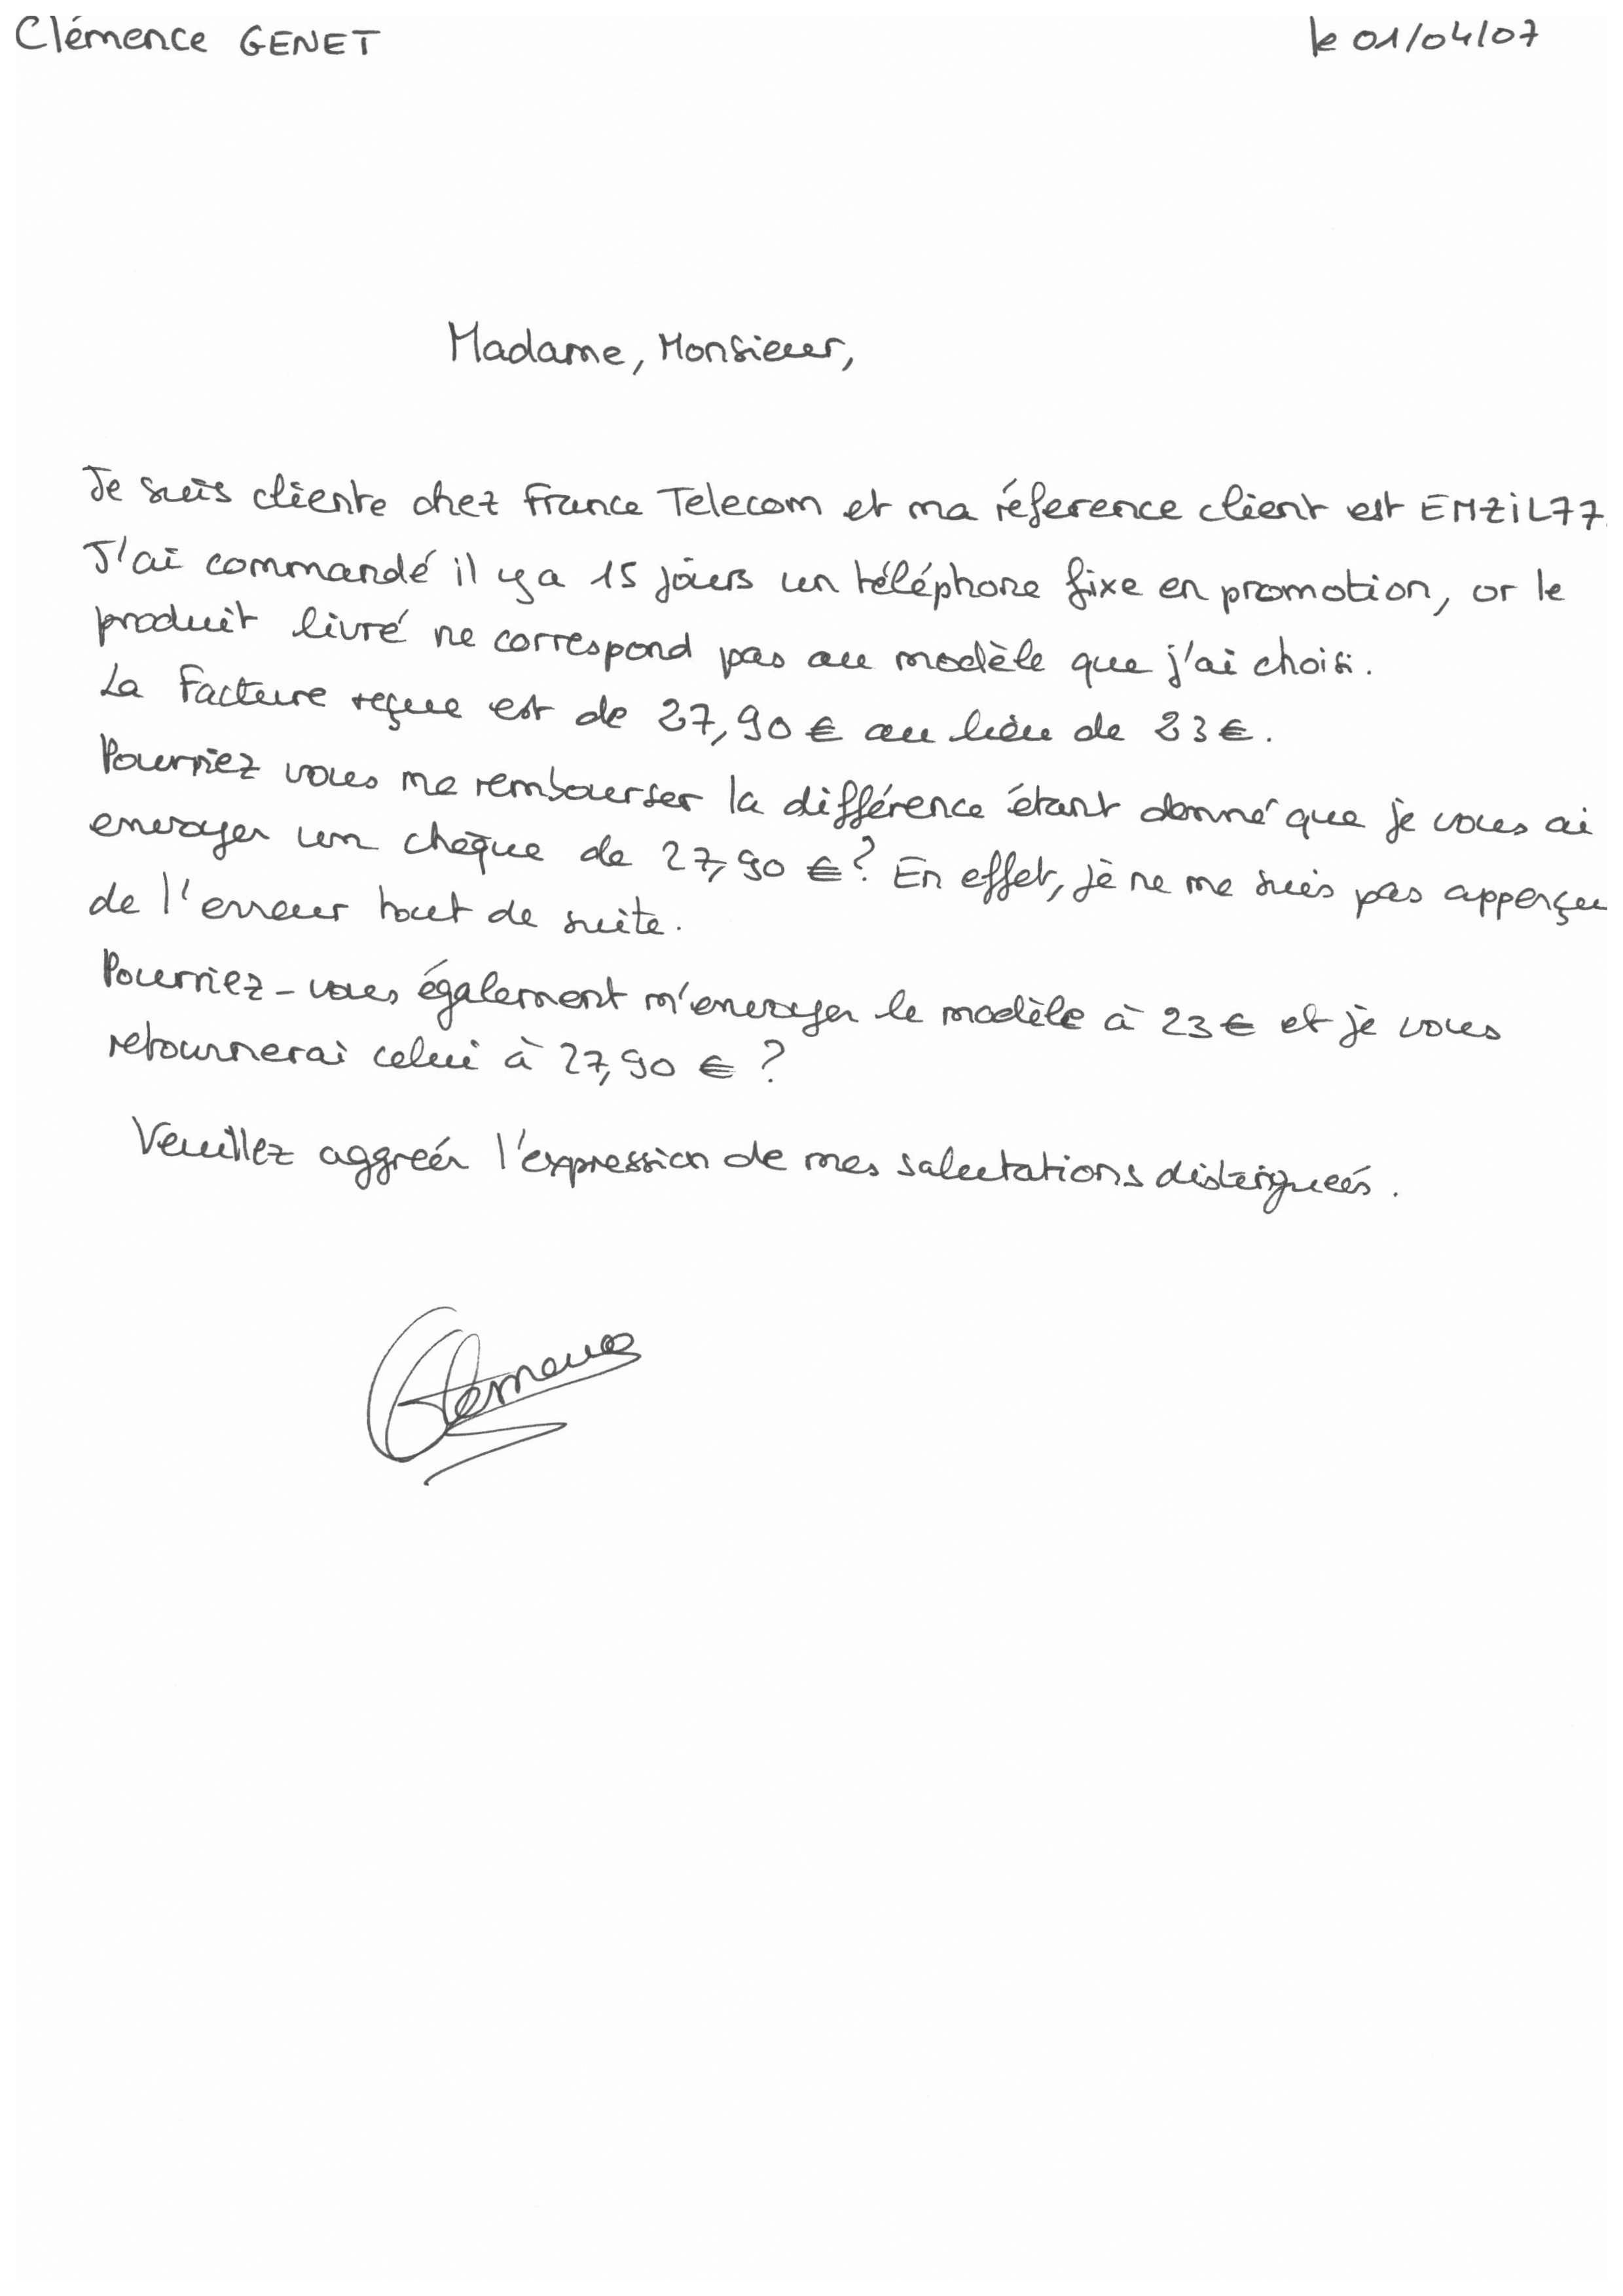 Clémence GENET
le 01/04/07
Madame, Monsieur,
Je suis cliente chez France Telecom et ma réference client est EMZIL77.
J'ai commandé il y a 15 jours un téléphone fixe en promotion, or le
produit livré ne correspond pas au modèle que j'ai choisi.
La facture reçue est de 27,90 € au lieu de 23 €.
Pourriez vous me rembourser la différence étant donné que je vous ai
envoyer un chèque de 27,90 € ? En effet, je ne me suis pas apperçu
de l'erreur tout de suite.
Pourriez-vous également m'envoyer le modèle à 23 € et je vous
retournerai celui à 27,90 € ?
Veuillez aggréer l'expression de mes salutations distinguées.
Clemence